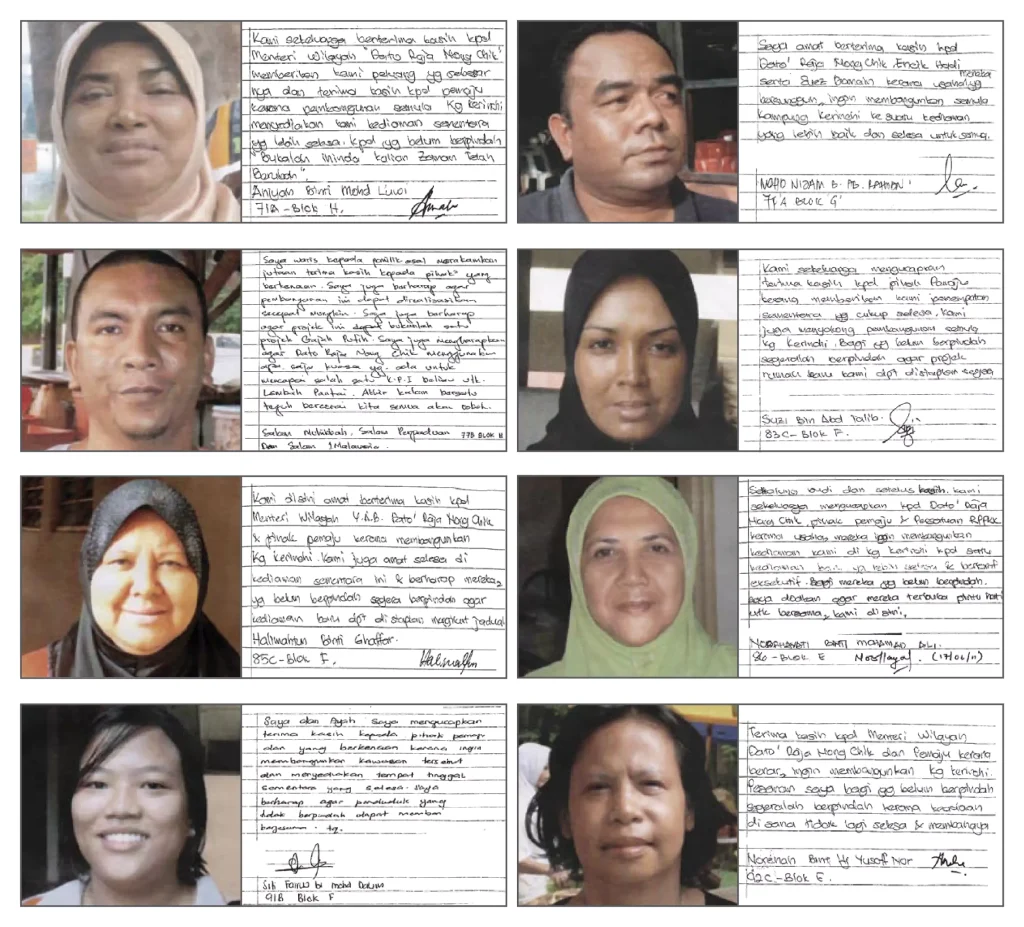 Kami sekeluarga berterima kasih kpd
Menteri Wilayah "Dato Raja Nong Chik"
memberikan kami peluang yg sebesar
nya dan terima kasih kpd pemaju
kerana pembangunan semula Kg Kerinchi
menyediakan kami kediaman sementara
yg lebih selesa. kpd yg belum berpindah
"Bukalah minda kalian Zaman Telah
Berubah".
Binti Mohd
71A - Blok H.
Saya amat berterima kasih kpd
Dato' Raja Nong Chik, Encik Hadi
serta kerana mereka
ingin membangunkan semula
kampung Kerinchi ke suatu kediaman
yang lebih baik dan selesa untuk semua.
MOHD NIZAM B. AB. RAHMAN
77A BLOK G
Saya waris kepada pemilik asal merakamkan
jutaan terima kasih kepada pihak" yang
berkenaan. Saya juga berharap agar
pembangunan ini dapat direalisasikan
secepat mungkin. Saya juga berharap
agar projek ini dapat bukanlah satu
projek Gajah Putih. Saya juga mengharapkan
agar Dato Raja Nong Chik menggunakan
apa saja kuasa yg. ada untuk
mencapai salah satu K.P.I beliau utk.
Lembah Pantai. Akhir kalam bersatu
teguh bercerai kita semua akan roboh.
Salam Muhibbah, Salam Perpaduan 77B BLOK H
Dan Salam 1Malaysia.
Kami sekeluarga mengucapkan
terima kasih kpd pihak Pemaju
kerana memberikan kami penempatan
sementara yg cukup selesa. Kami
juga menyokong pembangunan semula
kg Kerinchi. Bagi yg belum berpindah
segeralah berpindah agar projek
rumah baru kami dpt disiapkan segera
Suzi Bin Abd Talib.
83C - Blok F.
Kami disini amat berterima kasih kpd
Menteri Wilayah Y.A.B. Dato' Raja Nong Chik
& pihak pemaju kerana membangunkan
Kg Kerinchi. Kami juga amat selesa di
kediaman sementara ini & berharap mereka
yg belum berpindah segera berpindah agar
kediaman baru dpt disiapkan mengikut jadual
Halimahtun Binti Ghaffar.
85C - Blok F.
Sekalung budi dan setulus kasih, kami
sekeluarga mengucapkan kpd Dato' Raja
Nong Chik, pihak pemaju & Persatuan
kerana usaha mereka ingin membangunkan
kediaman kami di kg kerinchi kpd satu
kediaman baru yg lebih selesa & bertaraf
eksekutif. Bagi mereka yg belum berpindah,
saya doakan agar mereka terbuka pintu hati
utk bersama, kami di sini.
NOORHAYATI BINTI MOHAMAD ALI.
86 - BLOK E Noorhayati. (17/06/11)
Saya dan Ayah saya mengucapkan
terima kasih kepada pihak pemaju
dan yang berkenaan kerana ingin
membangunkan kawasan tersebut
dan menyediakan tempat tinggal
sementara yang selesa. Saya
berharap agar penduduk yang
tidak berpindah dapat memberi
kerjasama. tq.
Siti bt mohd
91B Blok F
Terima kasih kpd Menteri Wilayah
Dato' Raja Nong Chik dan Pemaju kerana
benar, ingin membangunkan kg kerinchi.
Pesanan saya bagi yg belum berpindah
segeralah berpindah kerana keadaan
di sana tidak lagi selesa & membahaya
Norainah Binti Hj Yusoff Nor
92C - Blok E.